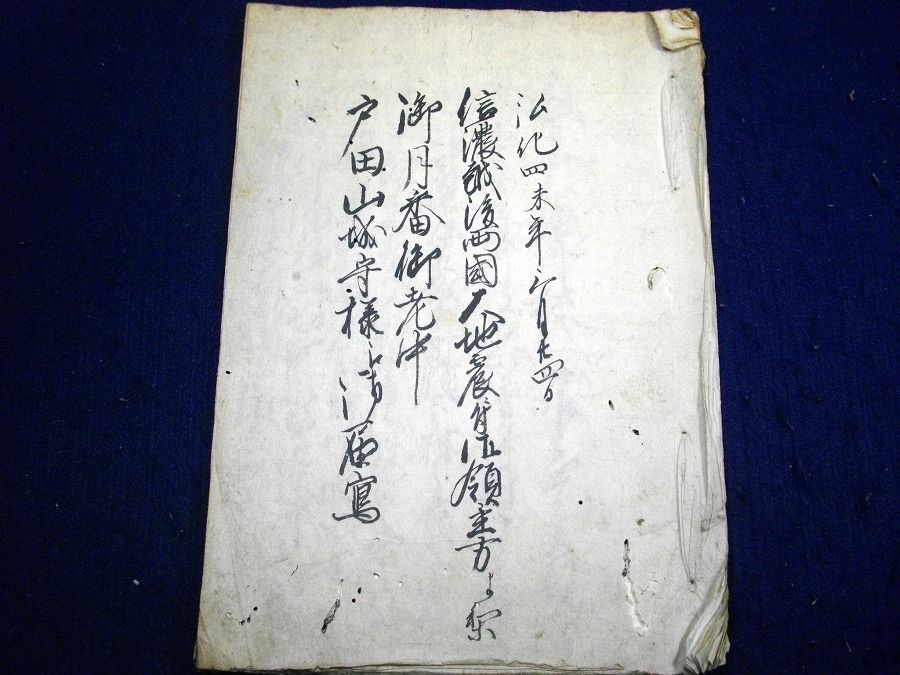 弘化四未年三月廿四日
信濃越後両國大地震ニ付御領主方ゟ
御月番御老中
戸田山城守様江御届寫